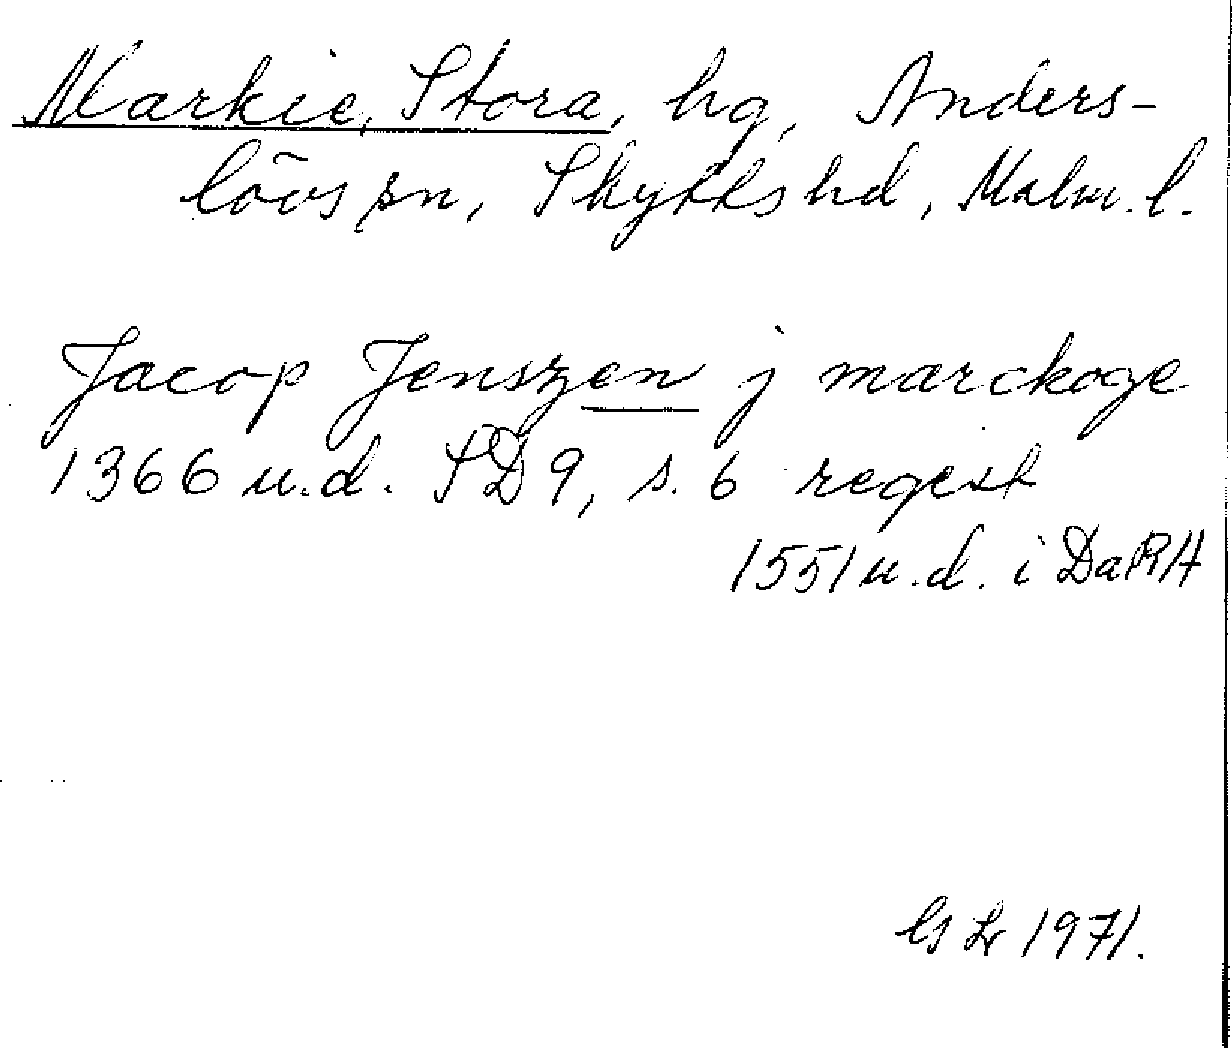 Markie, Stora, hg, Anders-
lövs sn, Skytts hd, Malm. l.
Jacop Jenszen j marckoge
1366 u.d. SD 9, s. 6 regest
1551 u.d. i DaRA
1971.